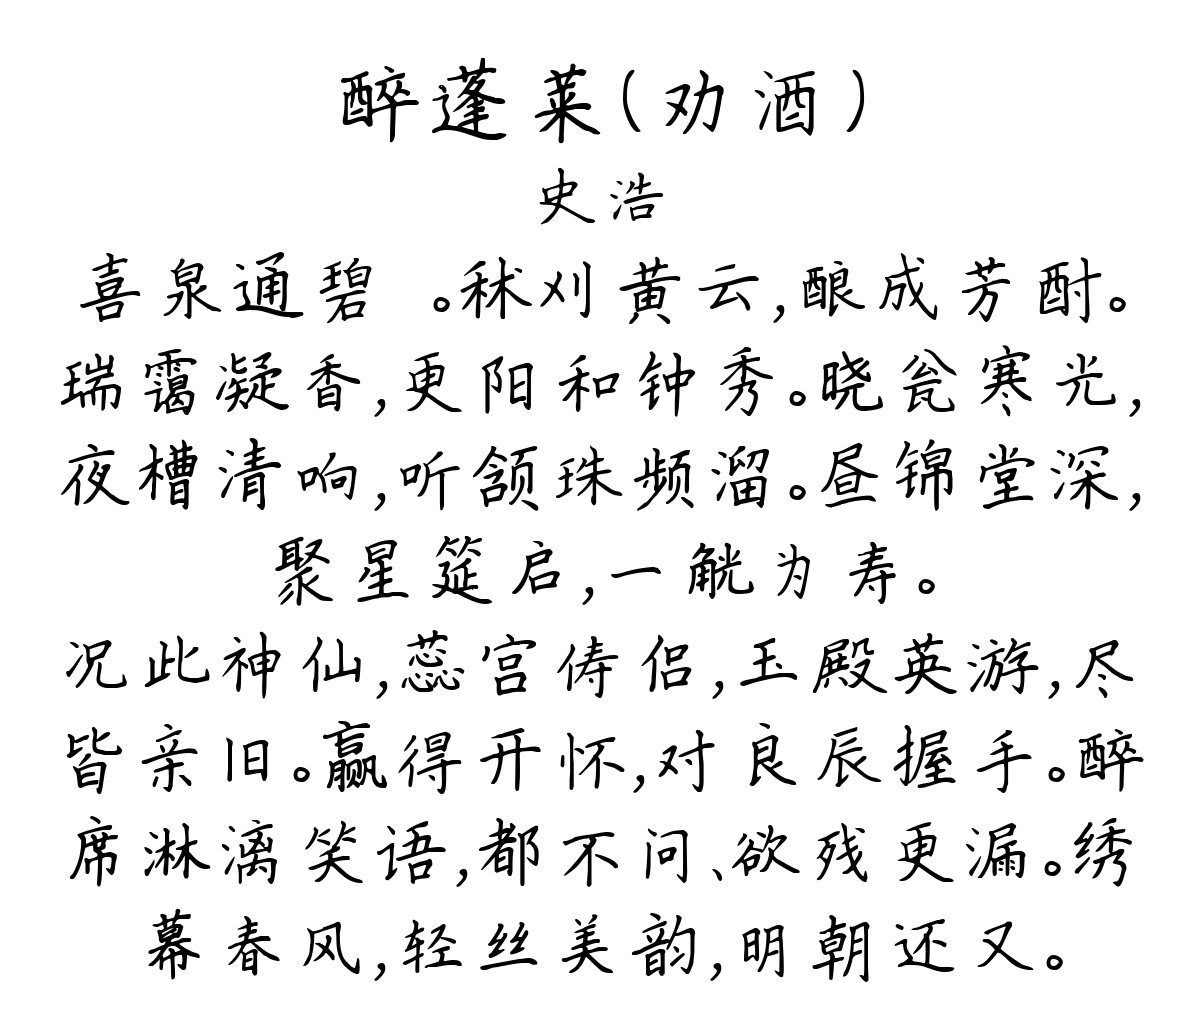 醉蓬莱(劝酒)
史浩
喜泉通碧 。秫刈黄云,酿成芳酎。
瑞霭凝香,更阳和钟秀。晓瓮寒光,
夜槽清响,听颔珠频溜。昼锦堂深,
聚星筵启,一觥为寿。
况此神仙,蕊宫俦侣,玉殿英游,尽
皆亲旧。赢得开怀,对良辰握手。醉
席淋漓笑语,都不问、欲残更漏。绣
幕春风,轻丝美韵,明朝还又。